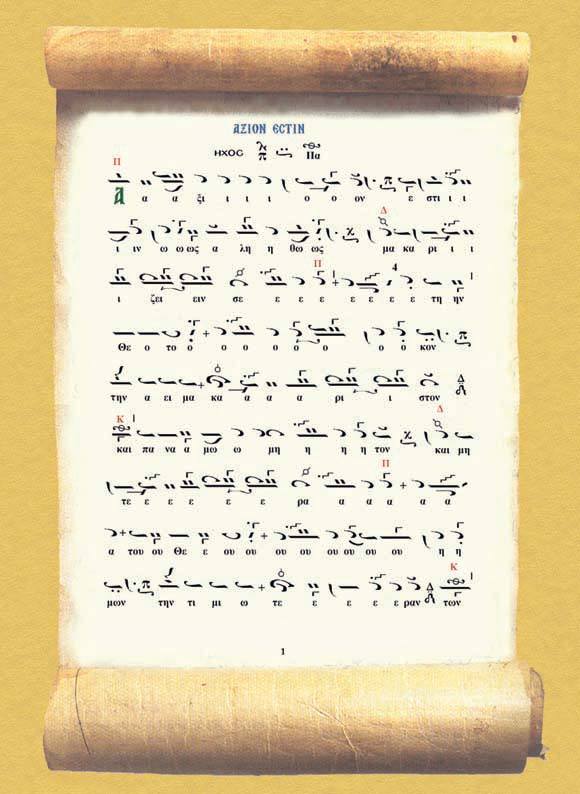 ΑΞΙΟΝ ΕϹΤΙΝ
ΗΧΟϹ Πα
Π
Α α α ξι ι ι ι ο ο ον ε στι ι ι
Δ
ι ιν ω ω ως α λη η θω ως μα κα ρι ι ι
Π
ι ζει ειν σε ε ε ε ε ε ε ε τη ην
4
Θε ο το ο ο ο ο ο ο ο ο ο κον
την α ει μα κα α α α ρι ι στον
Κ Δ
και πα να α μω ω μη η η η τον και μη
Π
τε ε ε ε ε ε ρα α α α α α
α του ου Θε ε ου ου ου ου ου ου ου η η
Κ
μων την τι μι ω τε ε ε ε ε ραν των
1